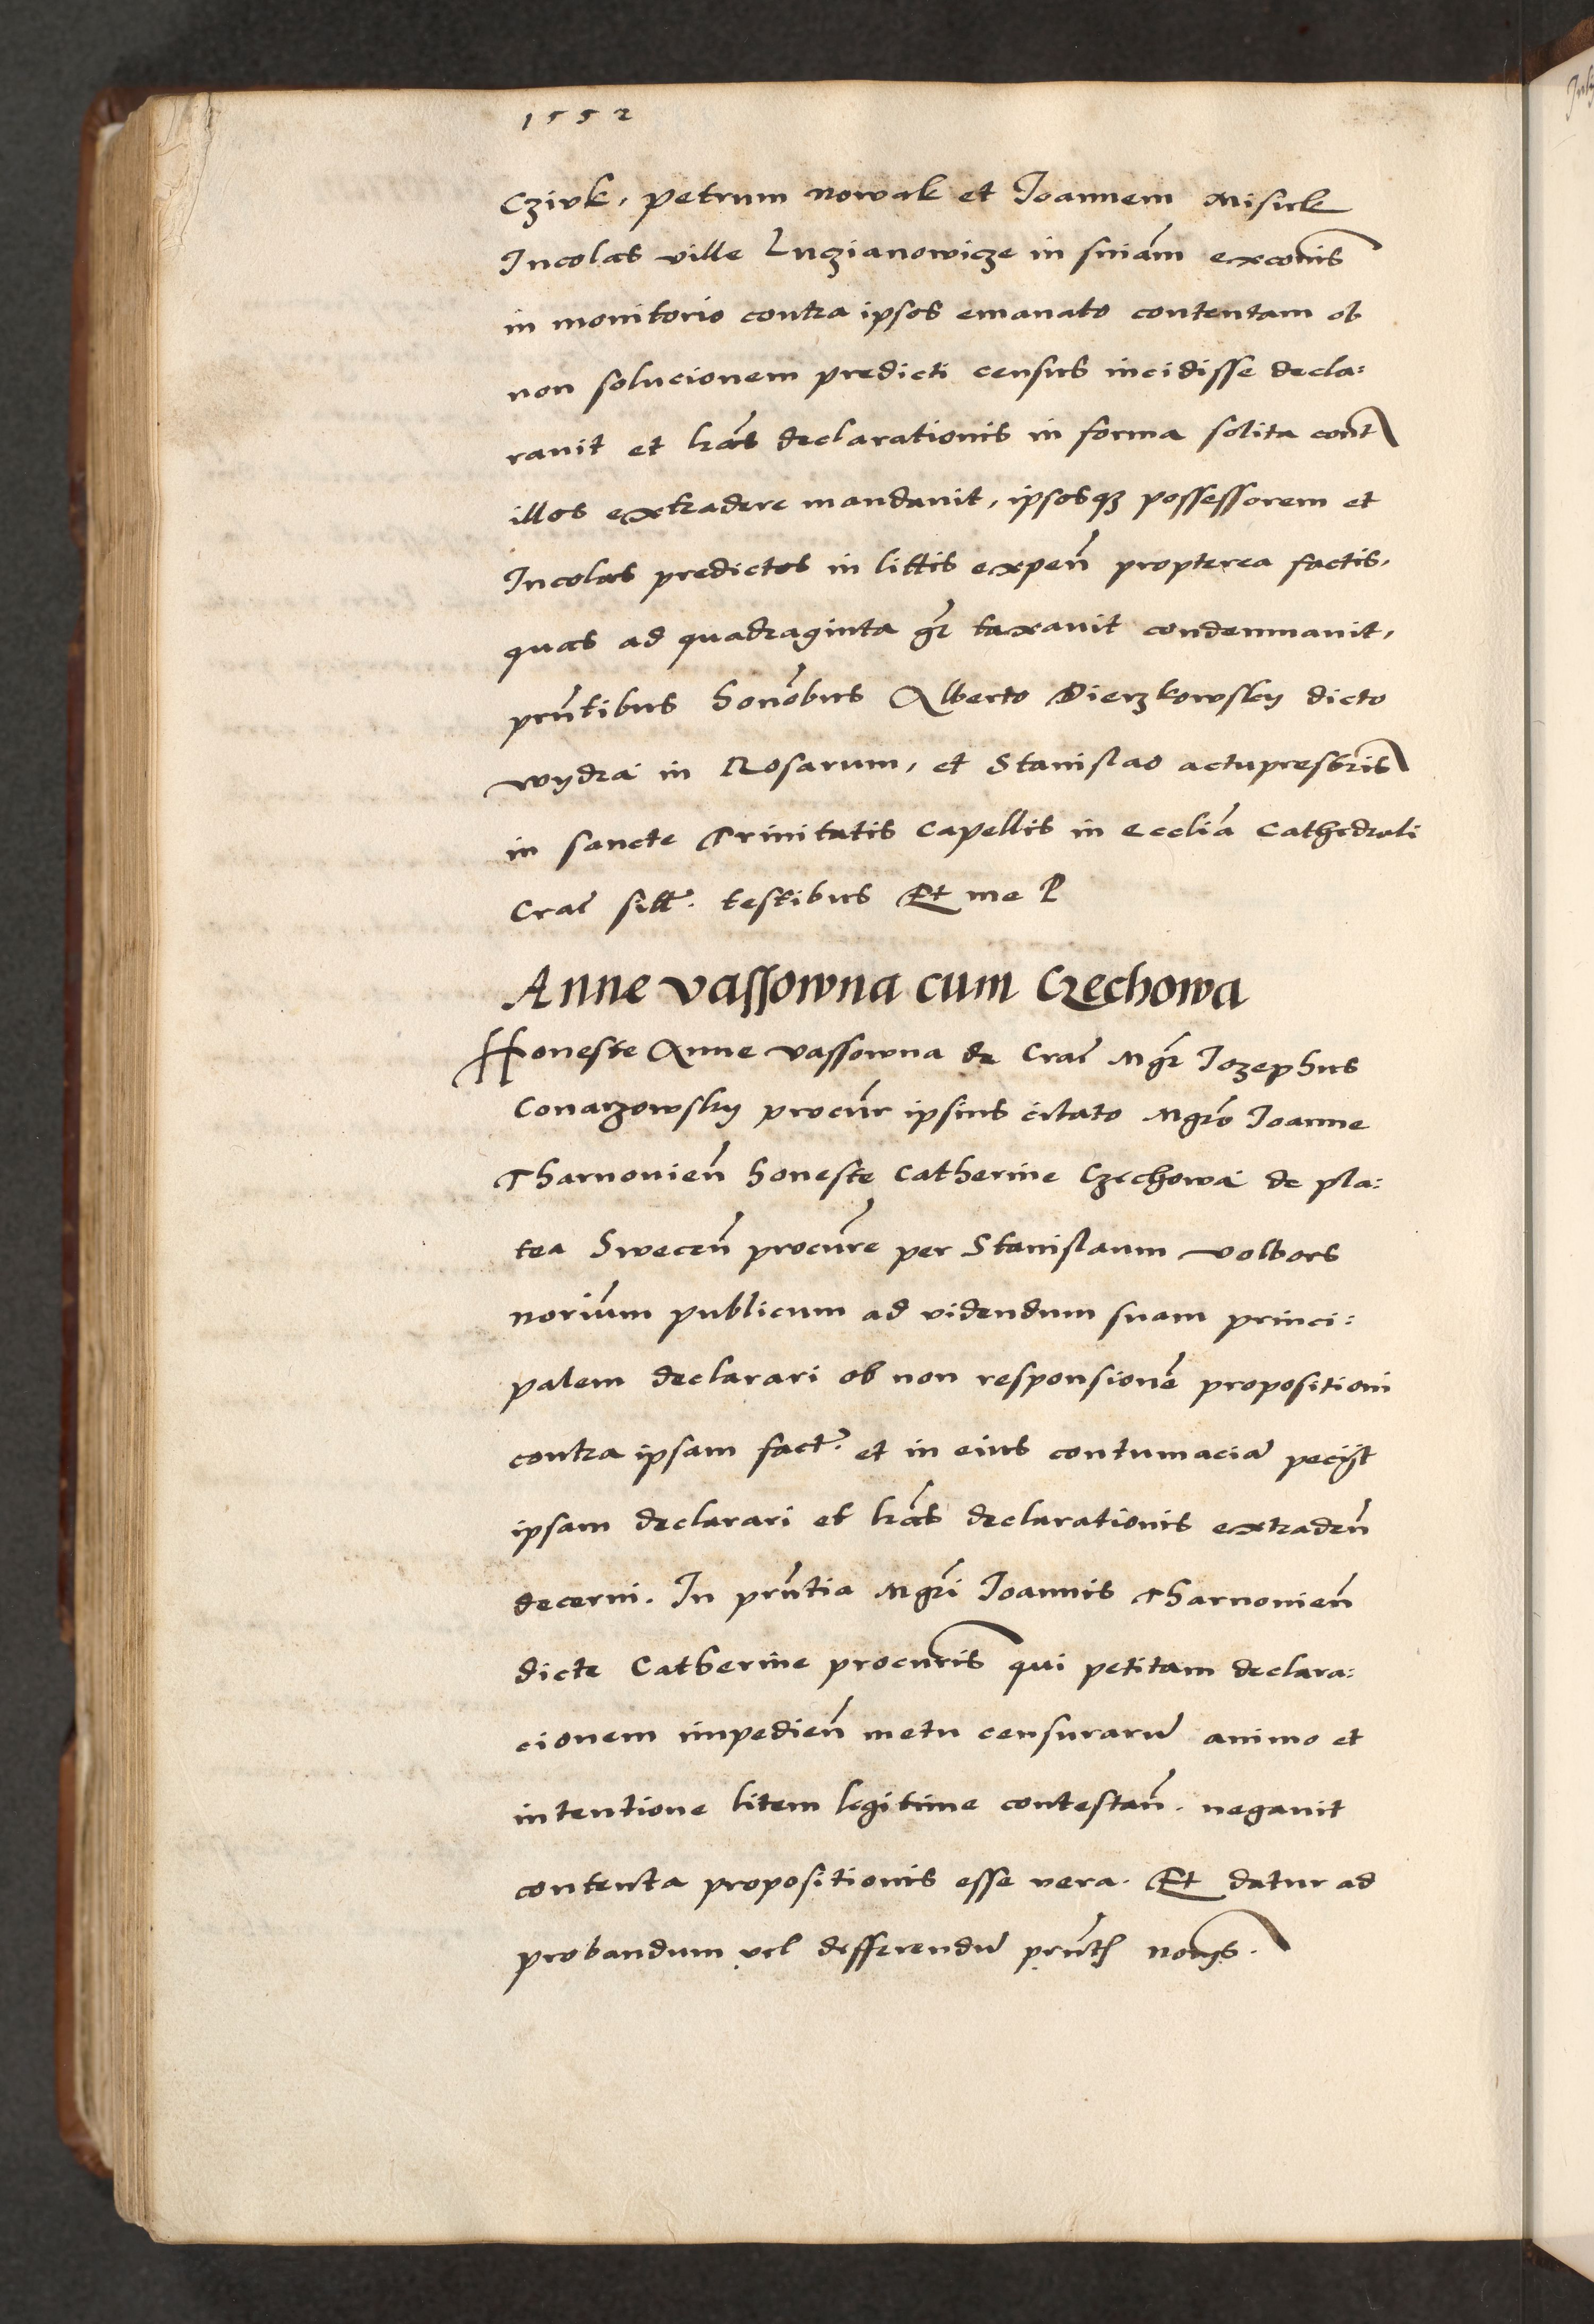 1552
Czirk, Petrum Nowak et Joannem Misiek
Incolas ville Luczianowicze in sniam̄ excōnis
in monitorio contra ipsos emanato contentam ob
non solucionem predicti census incidisse decla:
ravit et lrās declarationis in forma solita cont
illos extradere mandavit, ipsosqȝ possessorem et
Incolas predictos in littis expeñ propterea factis,
quas ad quadraginta gr̄ taxavit condemnavit,
prn̄tibus honōbus Alberto Dierzkowsky dicto
wydra in Rosarum, et Stanislao actupresbr̄is
in sancte Trinitatis Capellis in Eccliā Cathedrali
Crać sitt. testibus Et me P
Anne vassowna cum Czechowa
Honeste Anne vassowna de Crać Mgr̄ Jozephus
Conarzowsky procūr ipsius citato Mgrō Joanne
Tharnovień honeste Catherine Czechowa de pla:
tea Swecen̄ procūre per Stanislaum volbors
noriūm publicum ad videndum suam princi:
palem declarari ob non responsionē propositioni
contra ipsam fact. et in eius contumaciā pecijt
ipsam declarari et lrās declarationis extradeñ
decerni. In prn̄tia Mgr̄i Joannis Tharnovień
dicte Catherine procur̄is qui petitam declara:
cionem impedień metu censurarū animo et
intentione litem legitime contestań. negavit
contenta propositionis esse vera. Et datur ad
probandum vel differendū prn̄tb nōīs.